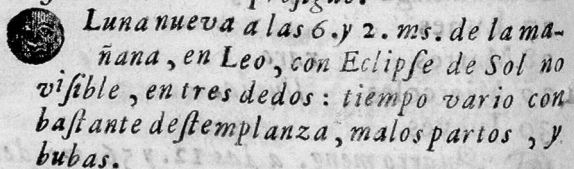 Luna nueva a las 6. y 2. ms. de la ma-
ñana, en Leo, con Eclipſe de Sol no
viſible, en tres dedos: tiempo vario con
baſtante deſtemplanza, malos partos, y
bubas.